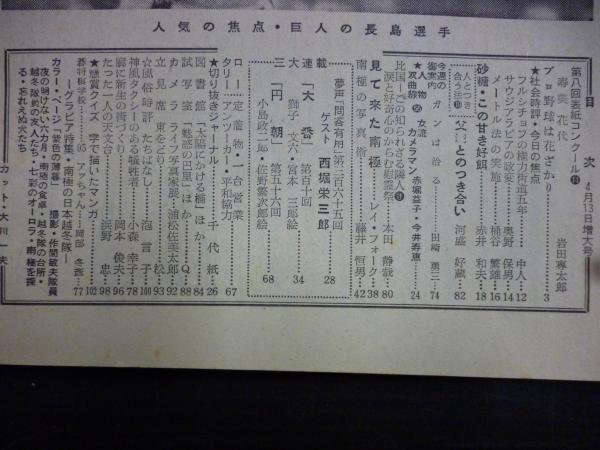 人気の焦点・巨人の長島選手
目次 4月13日増大号
第八回表紙コンクール⑪
寿美花代……岩田専太郎
プロ野球は花ざかり……3
★社会時評・今日の焦点
フルシチョフの権力街道五年……中山人 12
サウジアラビアの政変……奥野保男 14
メートル法の実施……桶谷繁雄 16
砂糖・この甘き好餌……赤井和夫 18
人とつき合う法⑮ 父とのつき合い……河盛好蔵 82
今週の御案内 ガンは治る……田崎勇三 74
★人物双曲線 女流カメラマン 赤堀益子・今井寿恵 24
比国〝この知られざる隣人〟
涙と好奇心のからむ慰霊祭……本田静哉 80
見て来た南極……レイ・フォーク 38
南極の写真術……藤井恒男 42
夢声〝問答有用〟第三百六十五回
ゲスト 西堀栄三郎……28
連載
「大番」第百十回
獅子文六・宮本三郎絵……34
三「円朝」第五十六回
小島政二郎・佐野繁次郎絵……68
ロータリー
定着物・一台営業
アンツーカー・平和協力……67
★切り抜きジャーナル……千代紙 26
図書館「太陽にかける橋」ほか……84
試写室「魅惑の巴里」ほか……Q 88
カメラ ライフ写真家展・浦松佐美太郎 92
立見席 東をどり……松 93
☆風俗時評 たちばなし……泡言子 100
神風タクシーのある犠牲者……小森幸子 78
廓に新生の街づくり……岡本俊夫 98
たった一人の天文台……浜野忠 96
★懸賞クイズ 字で描いたマンガ……102
碁将棋学校……95 アッちゃん……岡部冬彦 77
―グラビア特集・南極の日本越冬隊―
カラー・ページ 昭和基地の薄暮 撮影・作間敏夫隊員
夜の明けない六カ月・南極の食卓・越冬隊の台所・
越冬隊前の友人たち・七彩のオーロラ・南極を探
る・忘れえぬ犬たち
カット・大川一夫